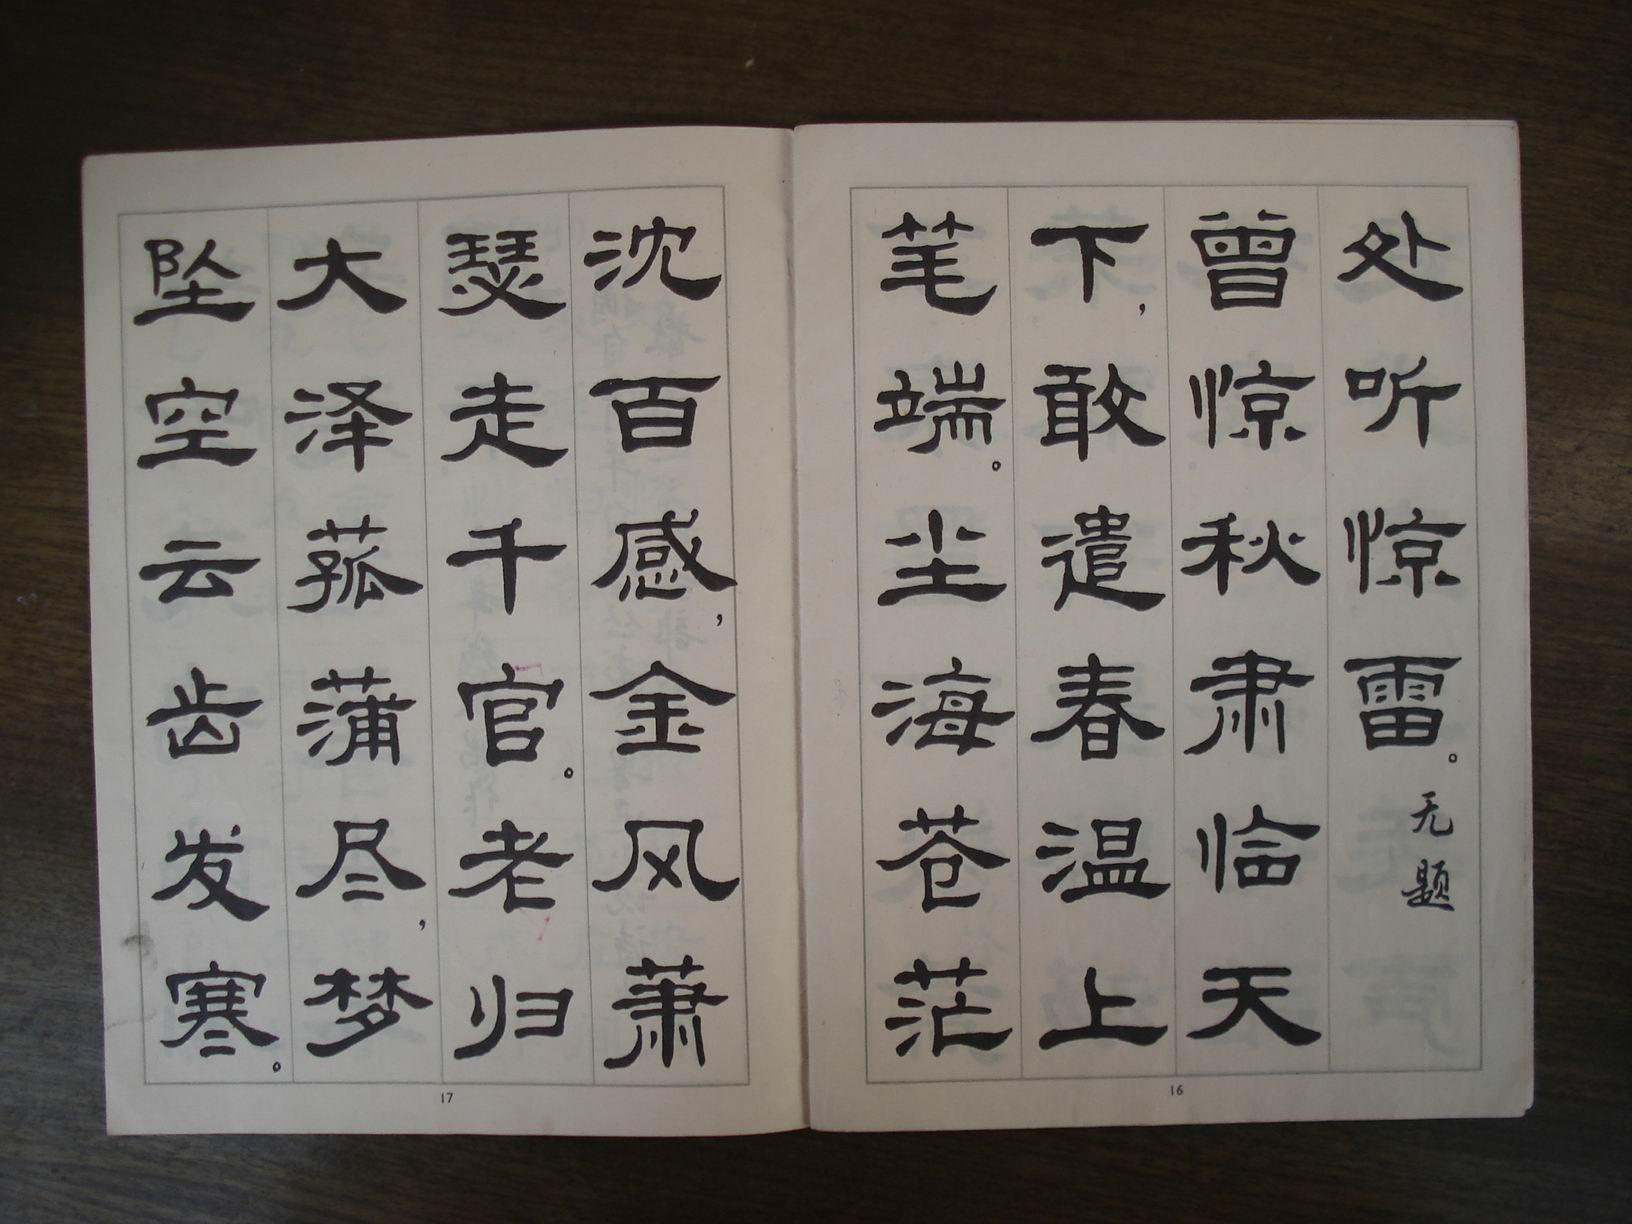 处听惊雷。
无题
曾惊秋肃临天
下，敢遣春温上
笔端。尘海苍茫
16
沈百感，金风萧
瑟走千官。老归
大泽菰蒲尽，梦
坠空云齿发寒。
17